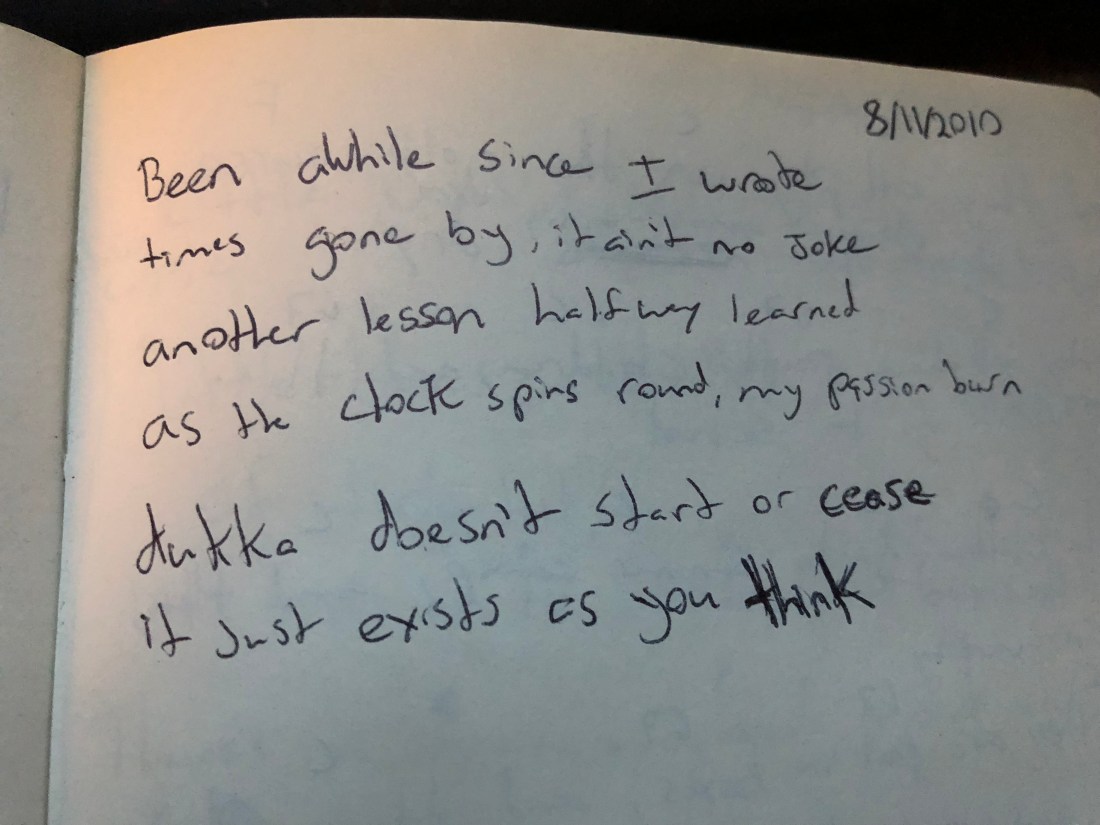 8/11/2010
Been awhile since I wrote
times gone by, it ain't no Joke
another lesson halfway learned
as the clock spins round, my passion burn
dukka doesn't start or cease
it Just exists as you think